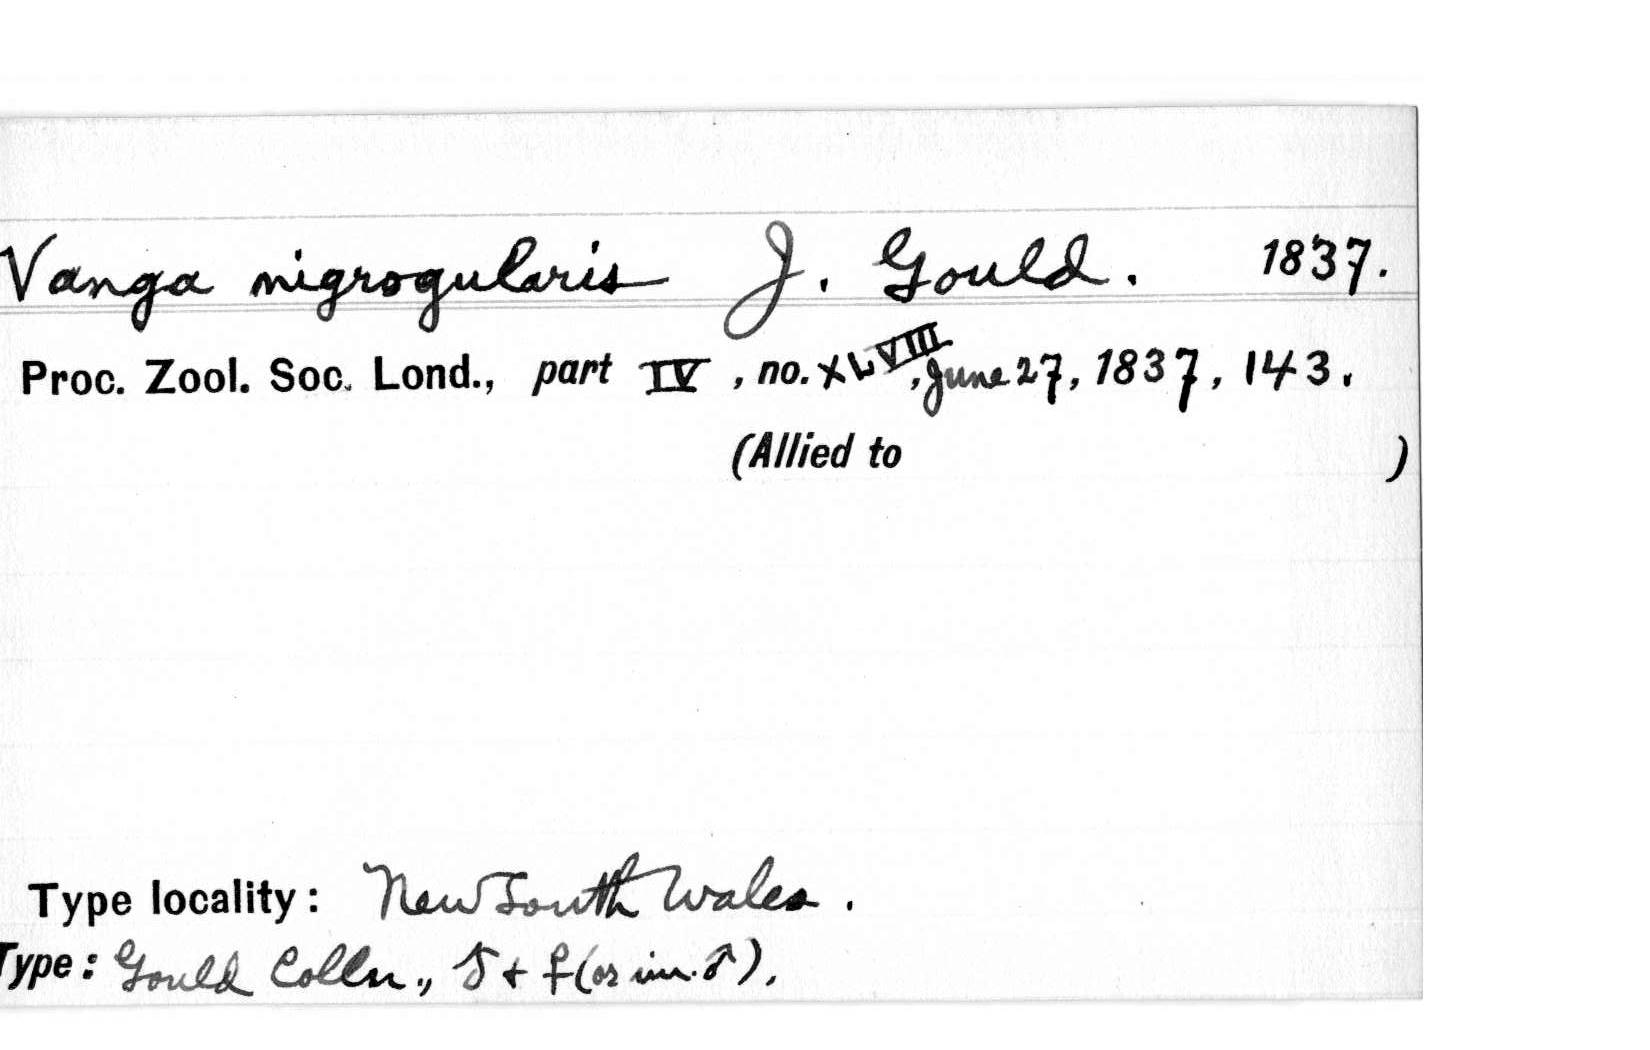 Vanga nigrogularis J. Gould. 1837.
Proc. Zool. Soc. Lond., part IV, no. XLVIII, June 27, 1837, 143.
(Allied to )
Type locality: New South Wales.
Type: Gould Colln., ♂ + ♀ (or im. ♂).